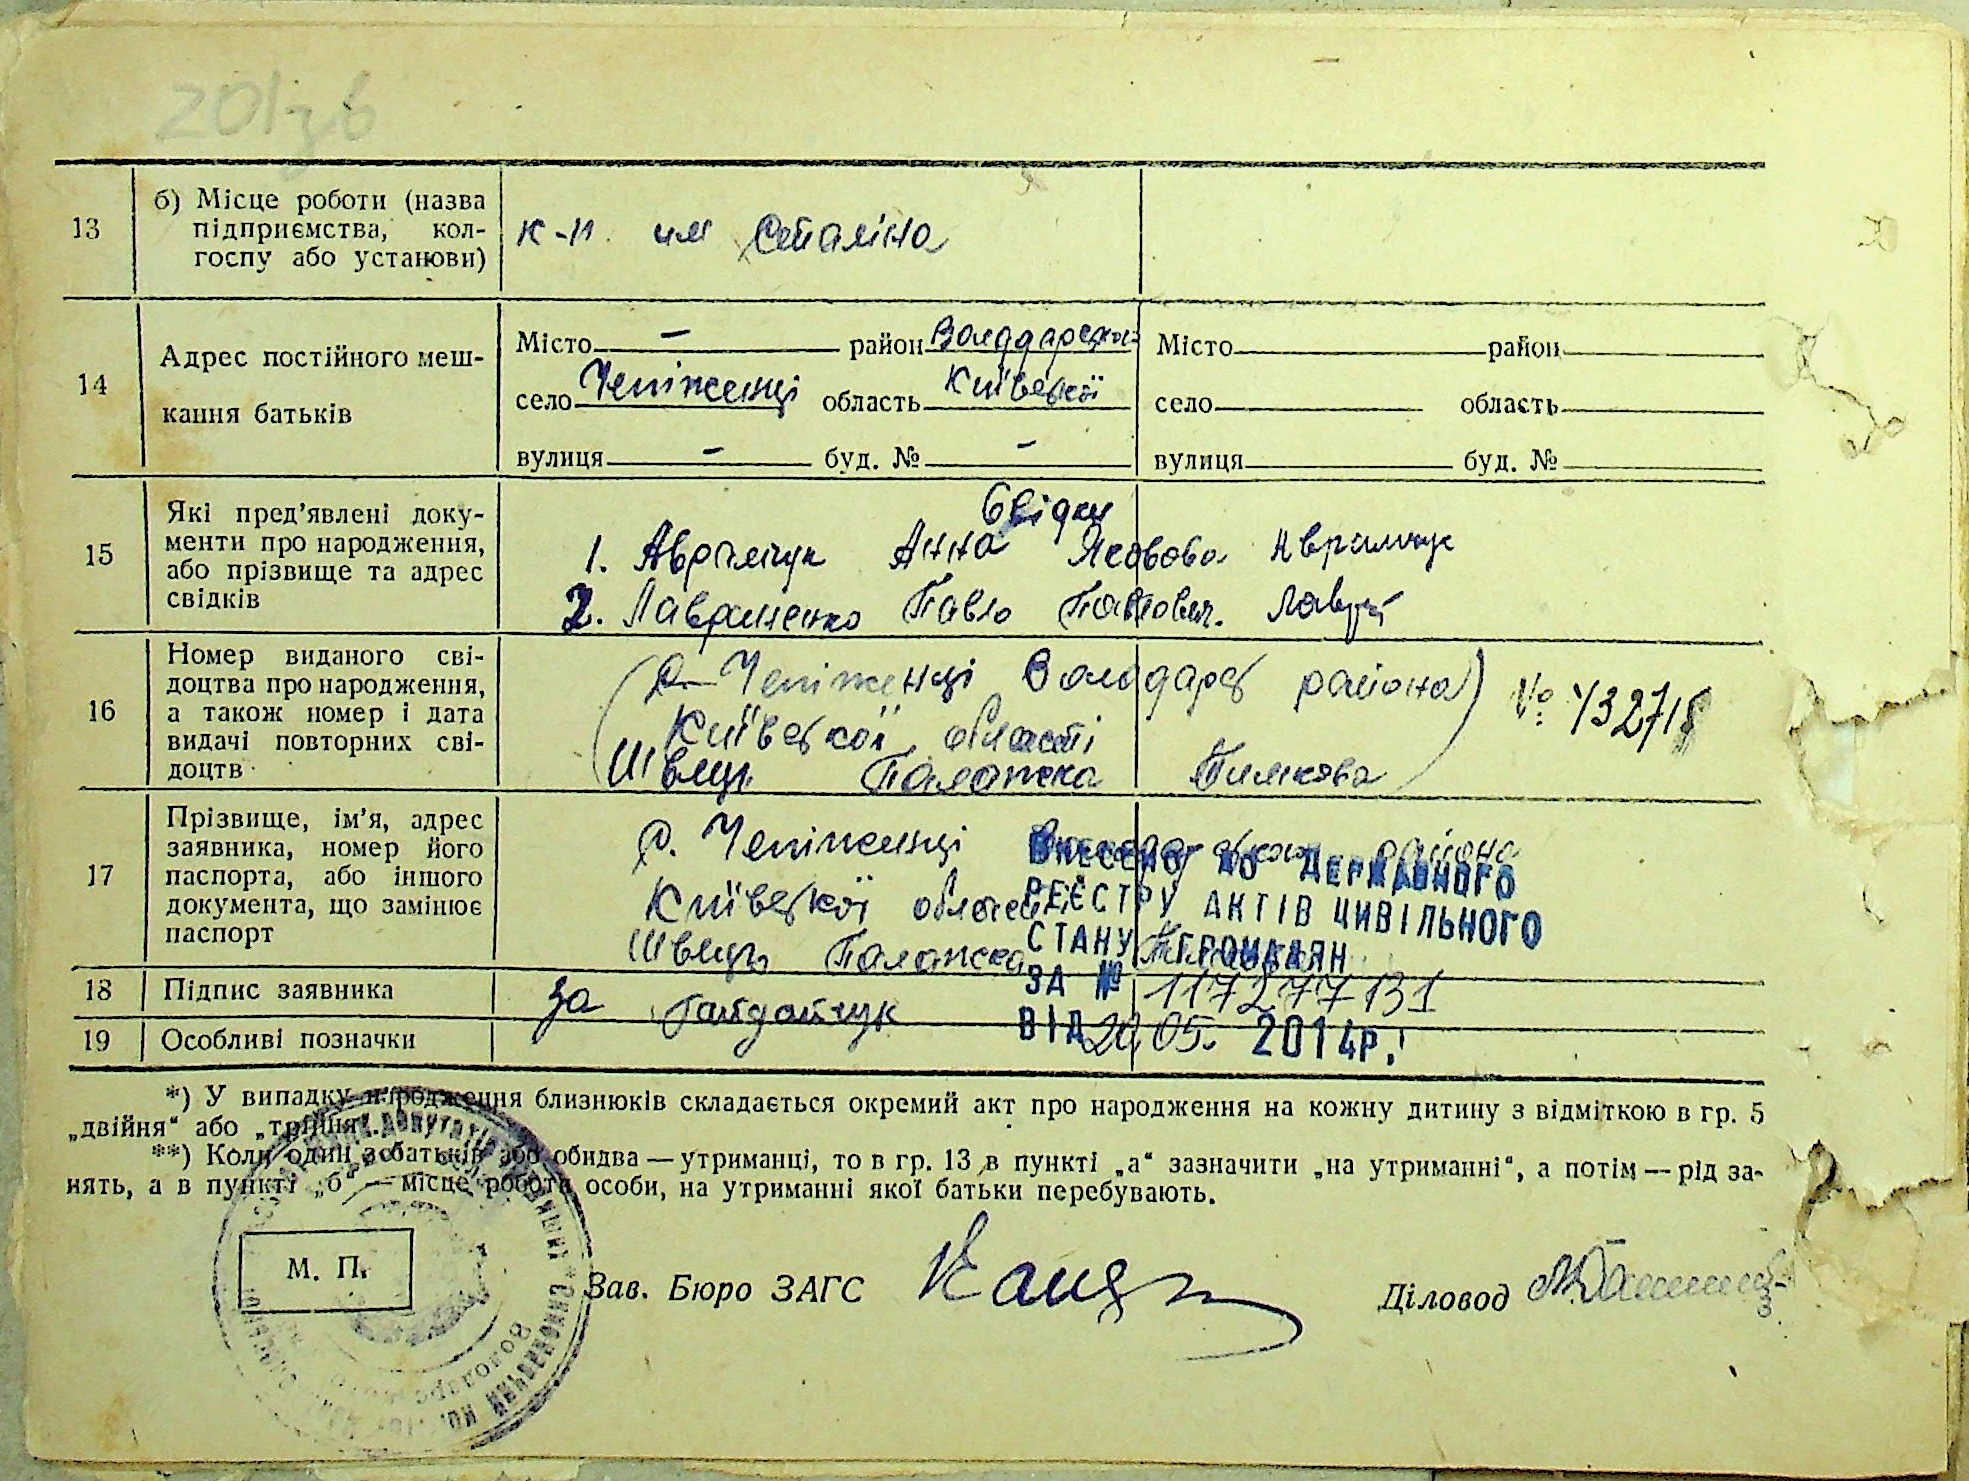 201зв
13
б) Місце роботи (назва
підприємства, кол-
госпу або установи)
к-п им Сталіна
14
Адрес постійного меш-
кання батьків
Місто — район Володарський
село Чепіженці область Київської
вулиця — буд. № —
Місто район
село область
вулиця буд. №
15
Які пред'явлені доку-
менти про народження,
або прізвище та адрес
свідків
Свідки
1. Аврамчук Анна Яковова Аврамчук
2. Лавриненко Павло Павлович. Лавр
16
Номер виданого сві-
доцтва про народження,
а також номер і дата
видачі повторних сві-
доцтв
(с. Чепіженці Володарсь района)
Київської області
№ 432718
17
Прізвище, ім'я, адрес
заявника, номер його
паспорта, або іншого
документа, що замінює
паспорт
Швець Палажка Тимкова
с. Чепіженці района
Київської області
Швець Палажка
ВНЕСЕНО ДО ДЕРЖАВНОГО
РЕЄСТРУ АКТІВ ЦИВІЛЬНОГО
СТАНУ ГРОМАДЯН
ЗА № 117277131
ВІД 20.05. 2014р.
18
Підпис заявника
за Гайдайчук
19
Особливі позначки
*) У випадку народження близнюків складається окремий акт про народження на кожну дитину з відміткою в гр. 5
„двійня“ або „трійня“.
**) Коли один з батьків або обидва — утриманці, то в гр. 13 в пункті „а“ зазначити „на утриманні“, а потім — рід за-
нять, а в пункті „б“ — місце роботи особи, на утриманні якої батьки перебувають.
М. П.
Зав. Бюро ЗАГС
Діловод